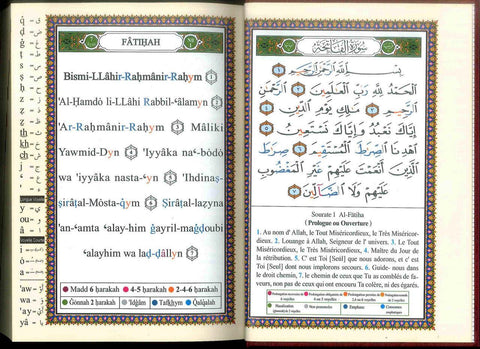 FÂTIḤAH
Bismi-LLâhir-Raḥmânir-Raḥym 1
'Al-Ḥamdò li-LLâhi Rabbil-ʿalamyn 2
'Ar-Raḥmânir-Raḥym 3 Mâliki
Yawmid-Dyn 4 'Iyyâka naʿ-bòdò
wa 'iyyâka nasta-ʿyn 5 'Ihdinaṣ-
Ṣirâṭal-Mòsta-qym 6 Ṣirâṭal-laḏyna
'anʿamta ʿalay-him ġayril-maġḍoubi
ʿalayhim wa laḍ-ḍâllyn 7
Madd 6 ḥarakah 4-5 ḥarakah 2-4-6 ḥarakah
Ġonnah 2 ḥarakah 'Idġâm Tafkhym Qalqalah
سورة الفاتحة
بِسْمِ اللَّهِ الرَّحْمَٰنِ الرَّحِيمِ ١
الْحَمْدُ لِلَّهِ رَبِّ الْعَالَمِينَ ٢ الرَّحْمَٰنِ
الرَّحِيمِ ٣ مَالِكِ يَوْمِ الدِّينِ ٤
إِيَّاكَ نَعْبُدُ وَإِيَّاكَ نَسْتَعِينُ ٥
اهْدِنَا الصِّرَاطَ الْمُسْتَقِيمَ ٦ صِرَاطَ
الَّذِينَ أَنْعَمْتَ عَلَيْهِمْ غَيْرِ الْمَغْضُوبِ
عَلَيْهِمْ وَلَا الضَّالِّينَ ٧
Sourate 1 Al-Fâtiha
( Prologue ou Ouverture )
1. Au nom d' Allah, le Tout Miséricordieux, le Très Miséricor-
dieux. 2. Louange à Allah, Seigneur de l' univers. 3. Le Tout
Miséricordieux, le Très Miséricordieux, 4. Maître du Jour de
la rétribution. 5. C' est Toi [Seul] que nous adorons, et c' est
Toi [Seul] dont nous implorons secours. 6. Guide- nous dans
le droit chemin, 7. le chemin de ceux que Tu as comblés de fa-
veurs, non pas de ceux qui ont encouru Ta colère, ni des égarés.